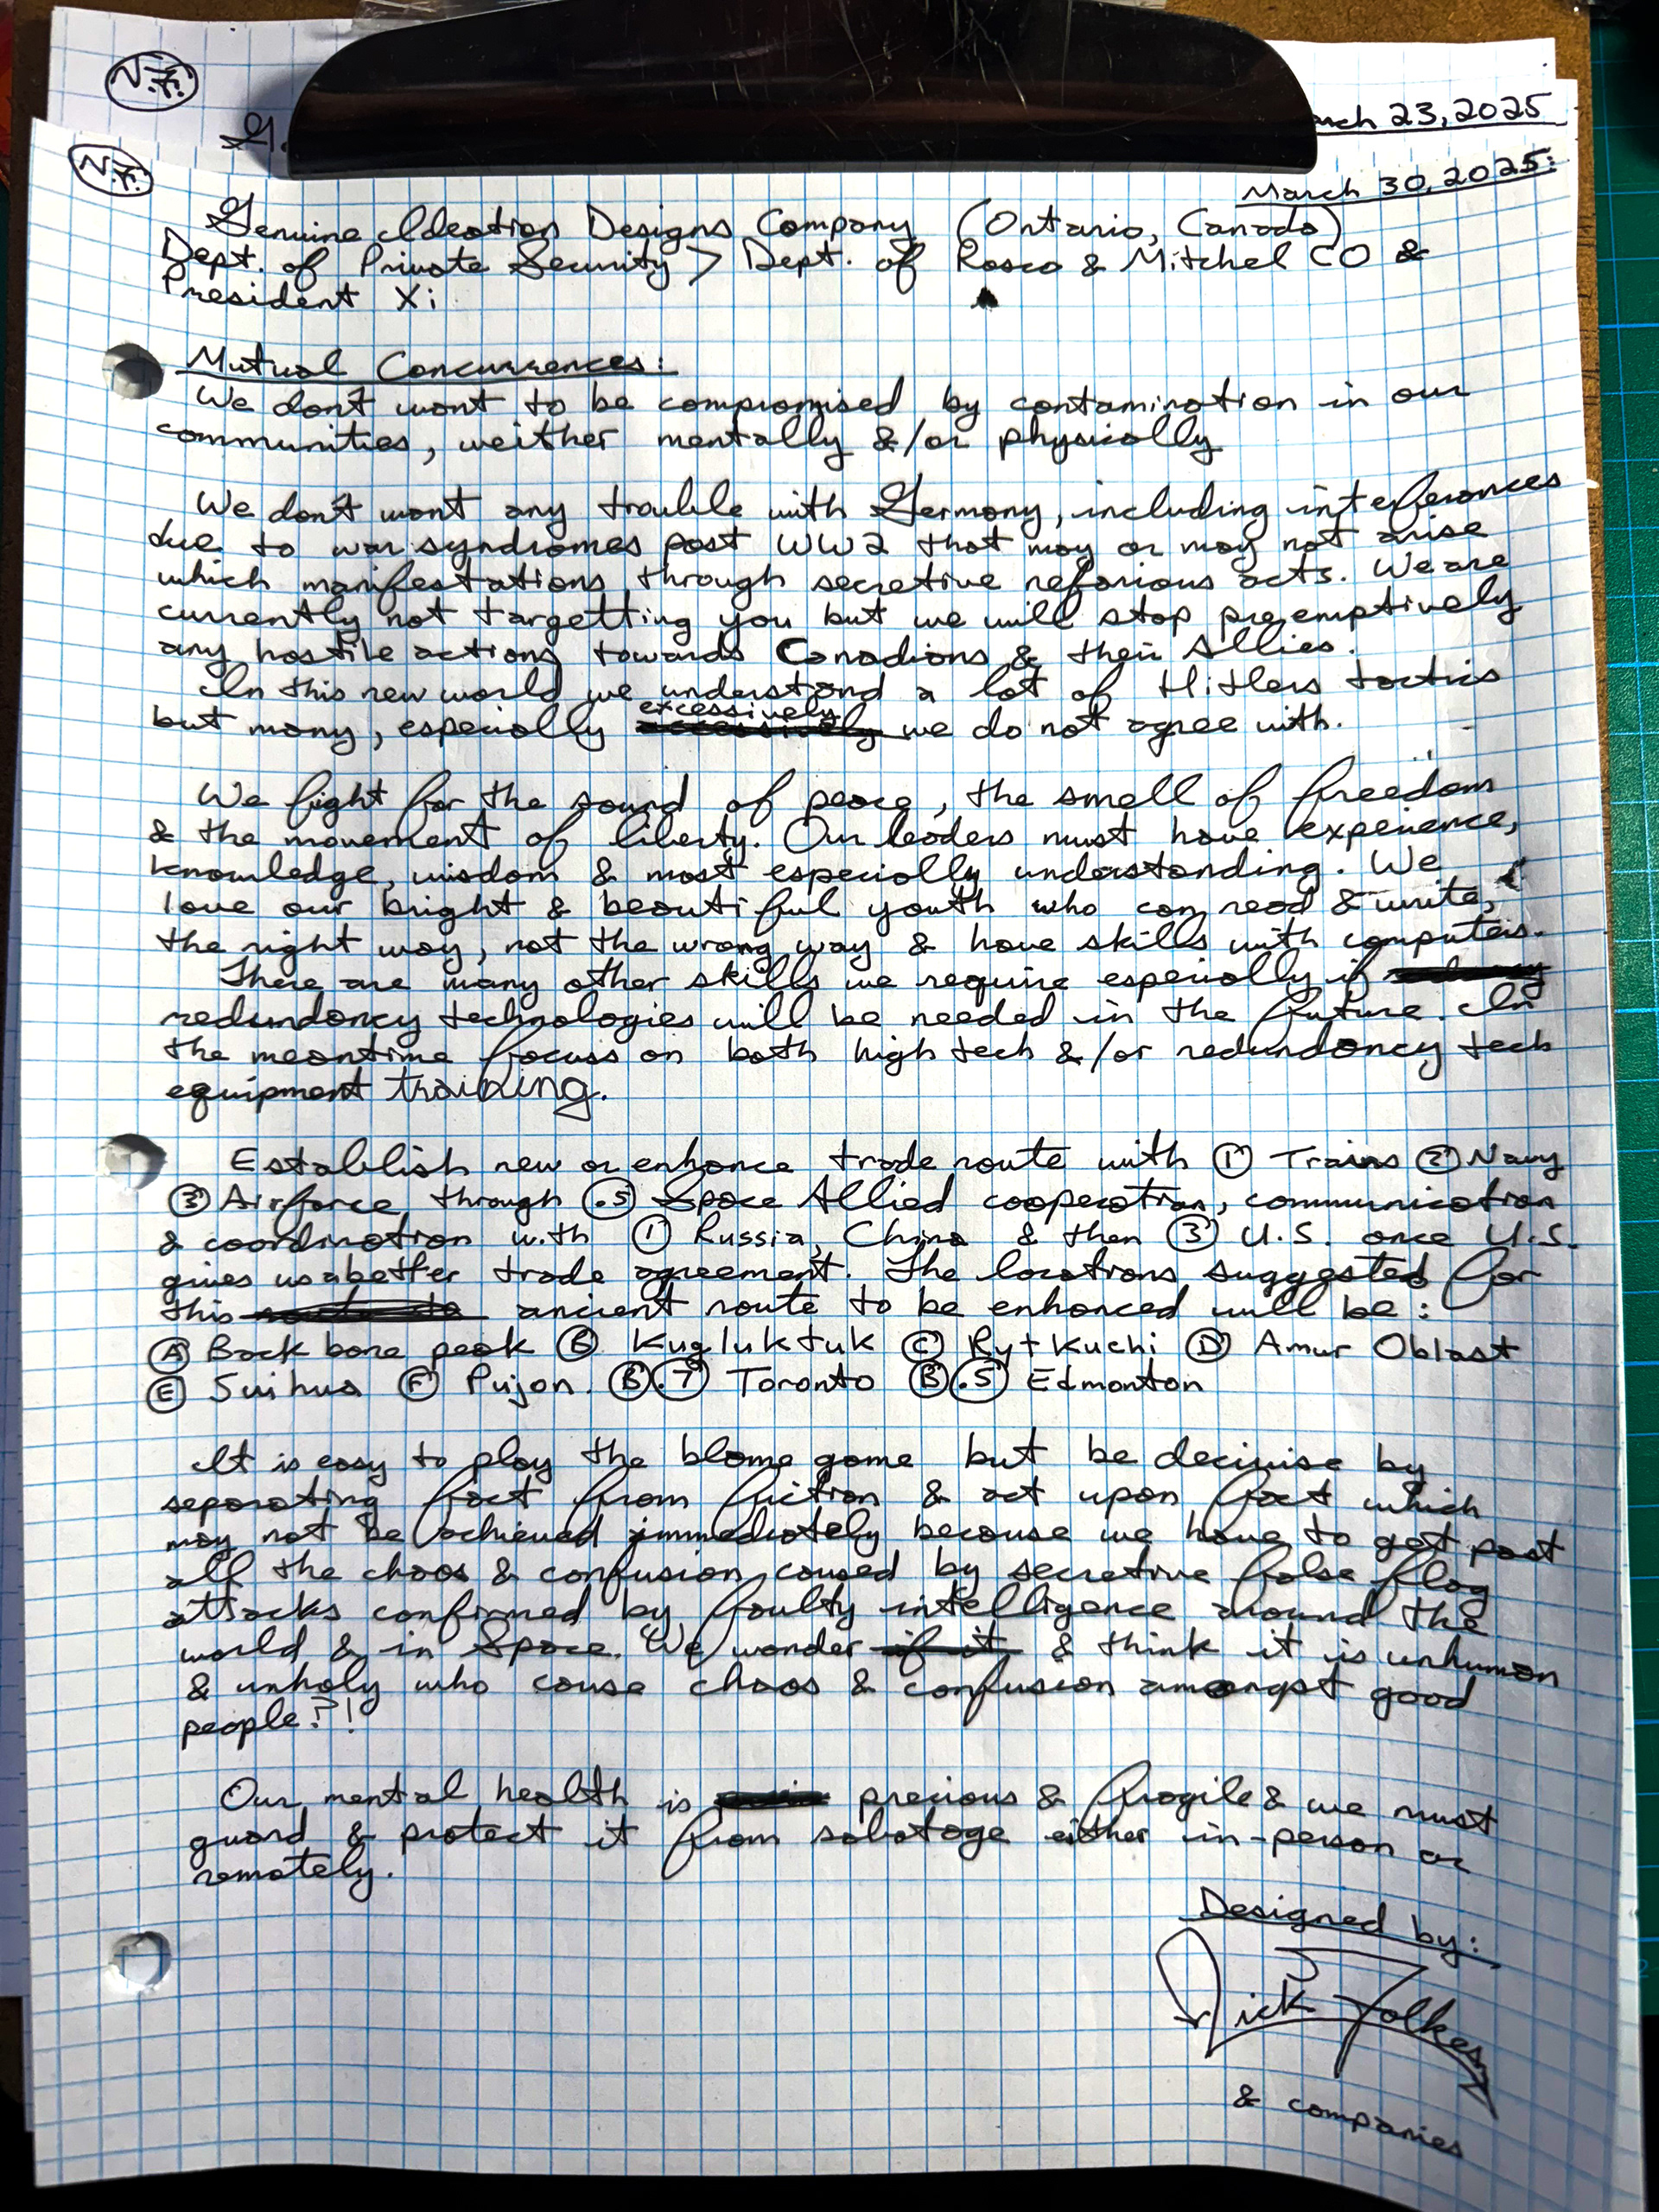 N.F.
G.
March 23, 2025
N.F.
March 30, 2025:
Genuine Ideation Designs Company (Ontario, Canada)
Dept. of Private Security > Dept. of Rosco & Mitchel CO &
President Xi
Mutual Concurrences:
We don't want to be compromised by contamination in our
communities, weither mentally &/or physically
We don't want any trouble with Germany, including interferances
due to war syndromes post WW2 that may or may not arise
which manifestations through secretive nefarious acts. We are
currently not targetting you but we will stop preemptively
any hostile actions towards Canadians & their Allies.
In this new world we understand a lot of Hitlers tactics
excessively
but many, especially we do not agree with.
We fight for the sound of peace, the smell of freedom
& the movement of liberty. Our leaders must have experience,
knowledge, wisdom & most especially understanding. We
love our bright & beautiful youth who can read & write,
the right way, not the wrong way & have skills with computers.
There are many other skills we require especially if
redundancy technologies will be needed in the future. In
the meantime focuss on both high tech &/or redundancy tech
equipment training.
Establish new or enhance trade route with ① Trains ② Navy
③ Airforce, through (.5) Space Allied cooperation, communication
& coordination with ① Russia, China & then ③ U.S. once U.S.
gives us a better trade agreement. The locations suggested for
this ancient route to be enhanced will be:
Ⓐ Back bone peak Ⓑ Kugluktuk Ⓒ Rytkuchi Ⓓ Amur Oblast
Ⓔ Suihua Ⓕ Pujon. Ⓑ(.7) Toronto Ⓑ(.5) Edmonton
It is easy to play the blame game but be decisive by
separating fact from fiction & act upon fact which
may not be achieved immediately because we have to get past
all the chaos & confusion caused by secretive false flag
attacks confirmed by faulty intelligence around the
world & in Space. We wonder & think it is unhuman
& unholy who cause chaos & confusion amongst good
people?!
Our mental health is precious & fragile & we must
guard & protect it from sabotage either in-person or
remotely.
Designed by:
Nick Folkes
& companies